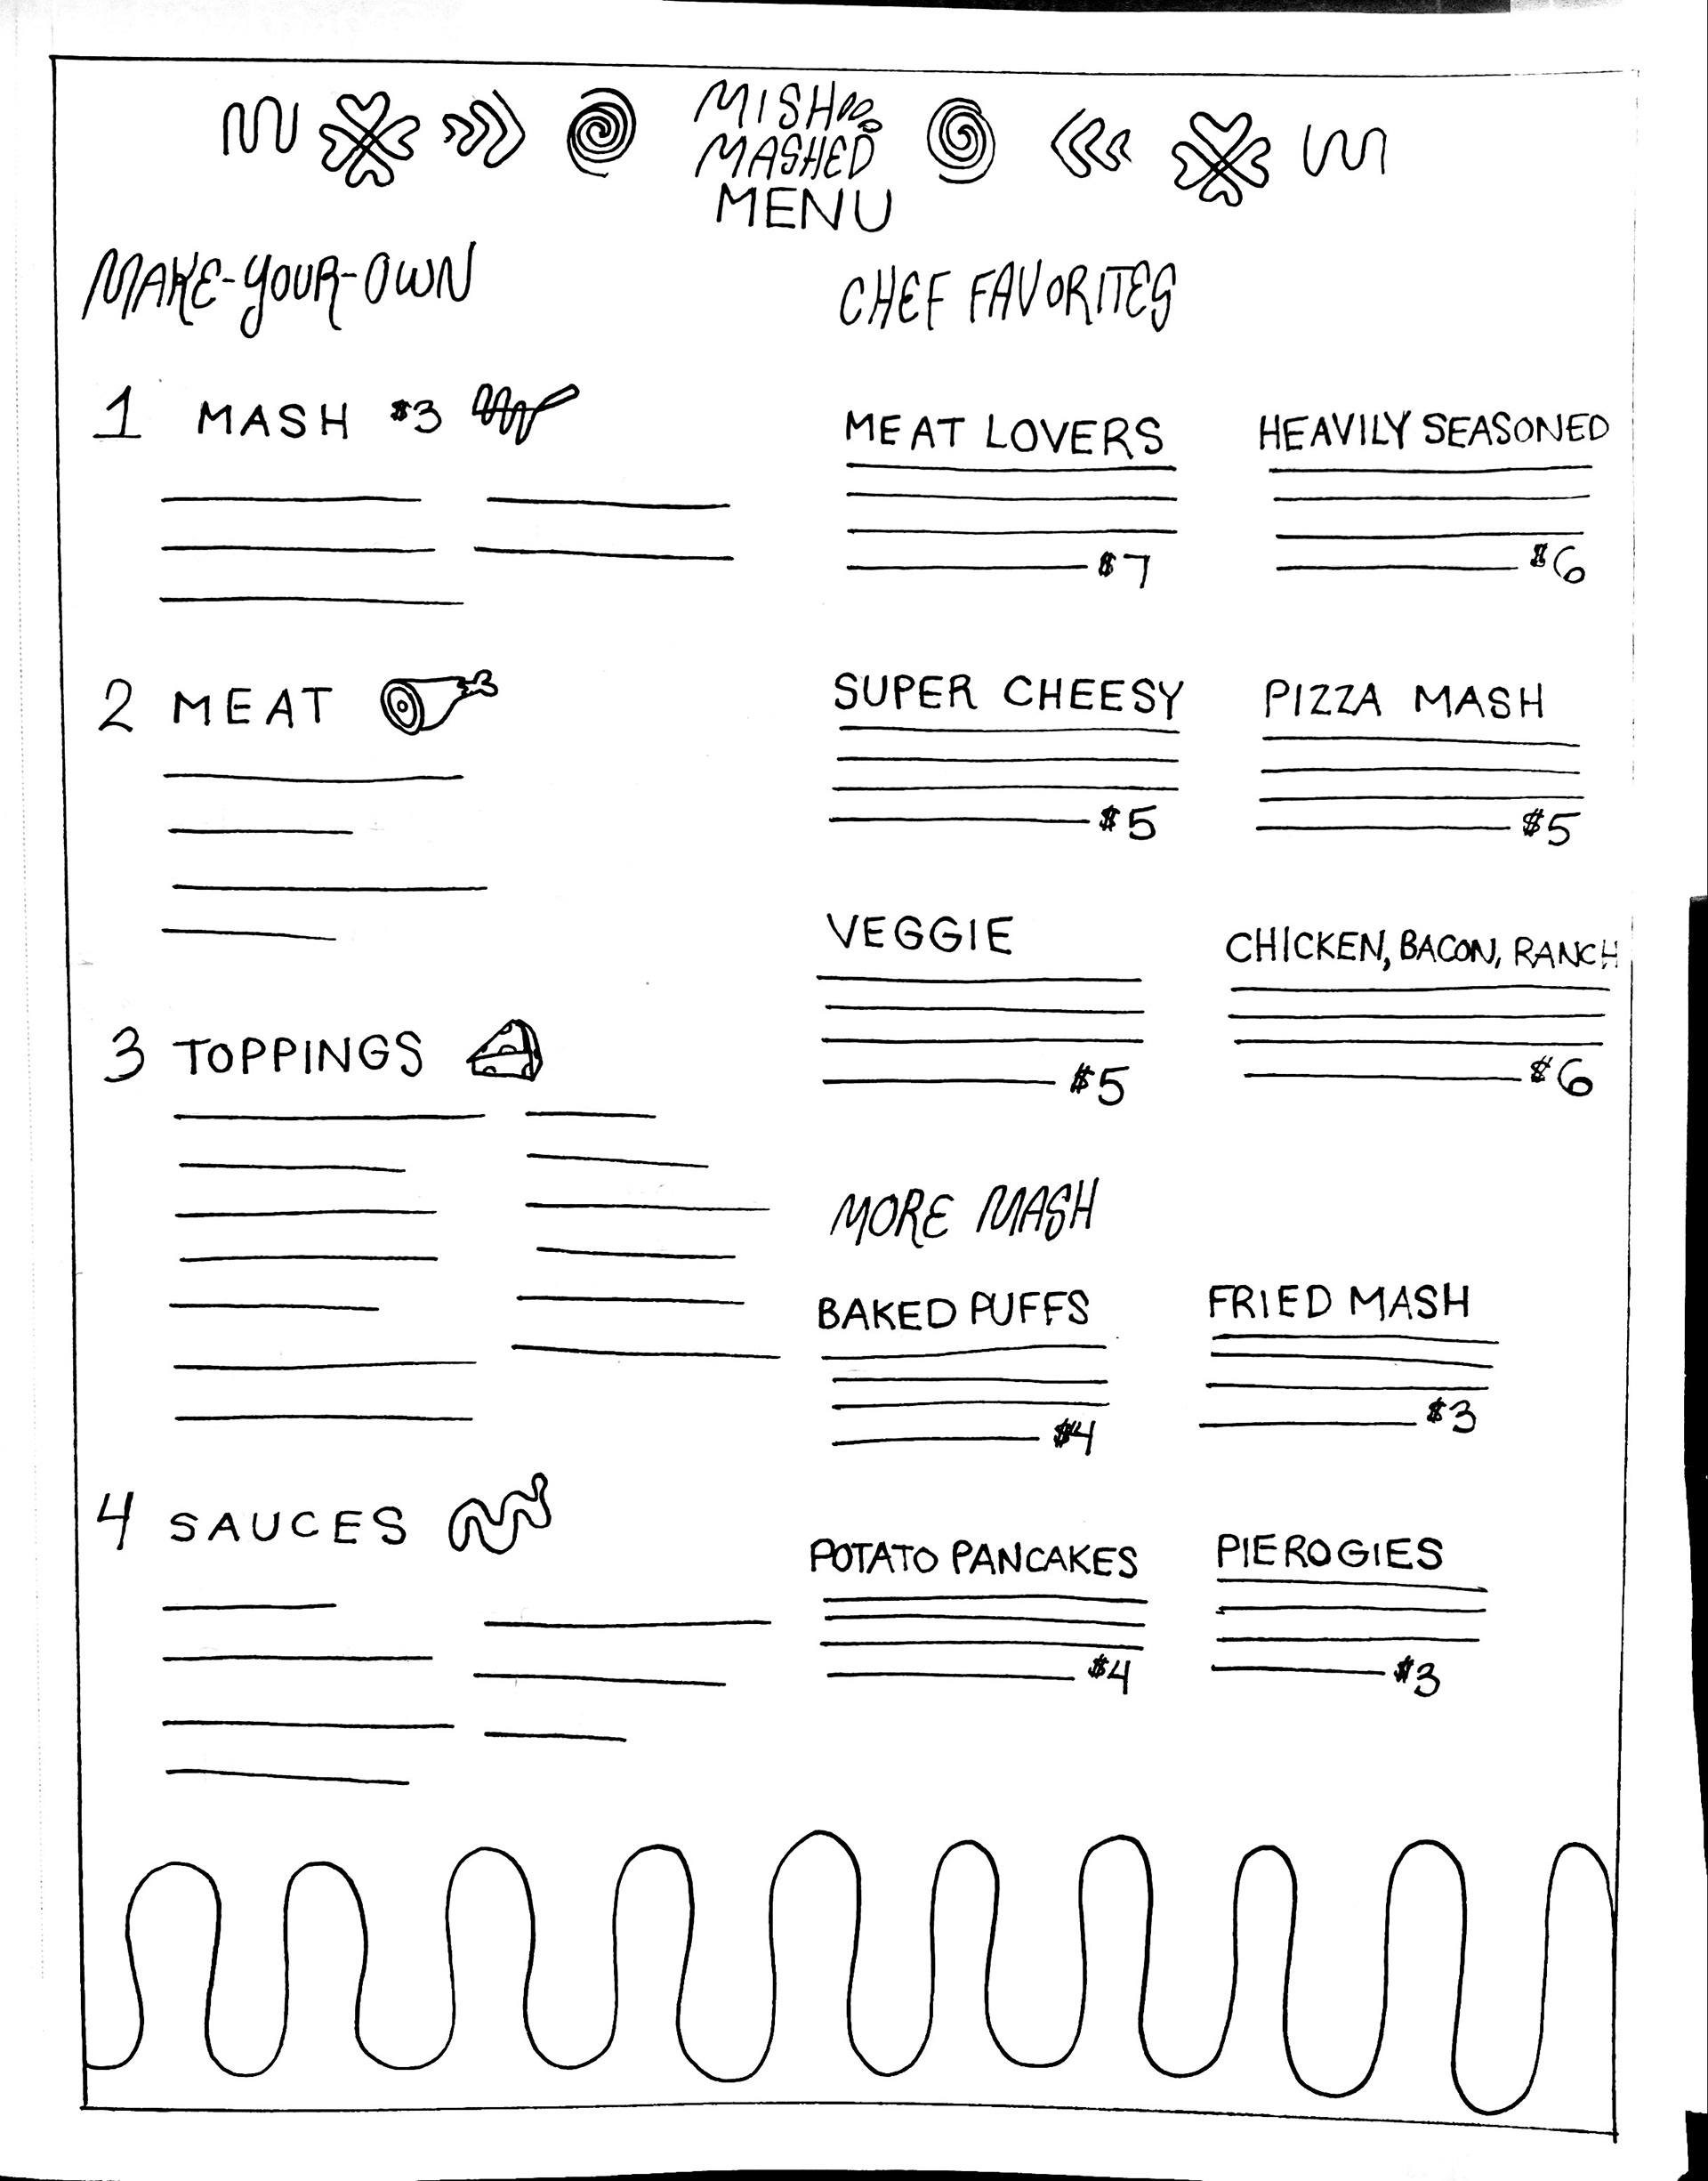 MISH
MASHED
MENU
MAKE-YOUR-OWN
1 MASH $3
2 MEAT
3 TOPPINGS
4 SAUCES
CHEF FAVORITES
MEAT LOVERS
$7
HEAVILY SEASONED
$6
SUPER CHEESY
$5
PIZZA MASH
$5
VEGGIE
$5
CHICKEN, BACON, RANCH
$6
MORE MASH
BAKED PUFFS
$4
FRIED MASH
$3
POTATO PANCAKES
$4
PIEROGIES
$3